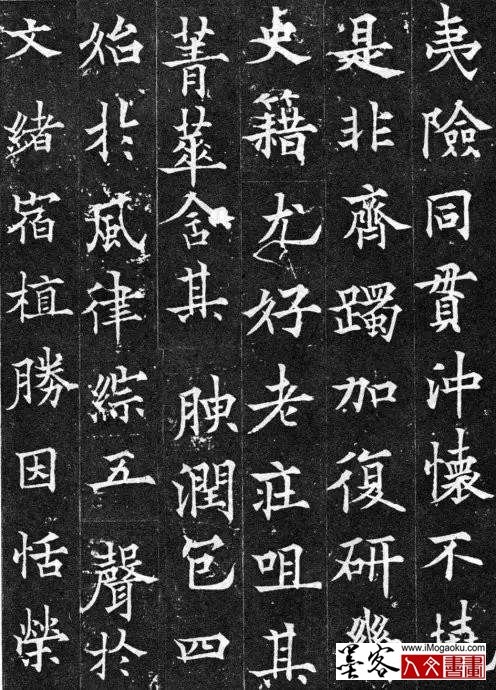 夷險同貫沖懷不撓
是非齊躅加復研幾
史籍尤好老莊咀其
菁華含其腴潤包四
始於風律綜五聲於
文緒宿植勝因恬榮
墨客
www.iMogaoku.com